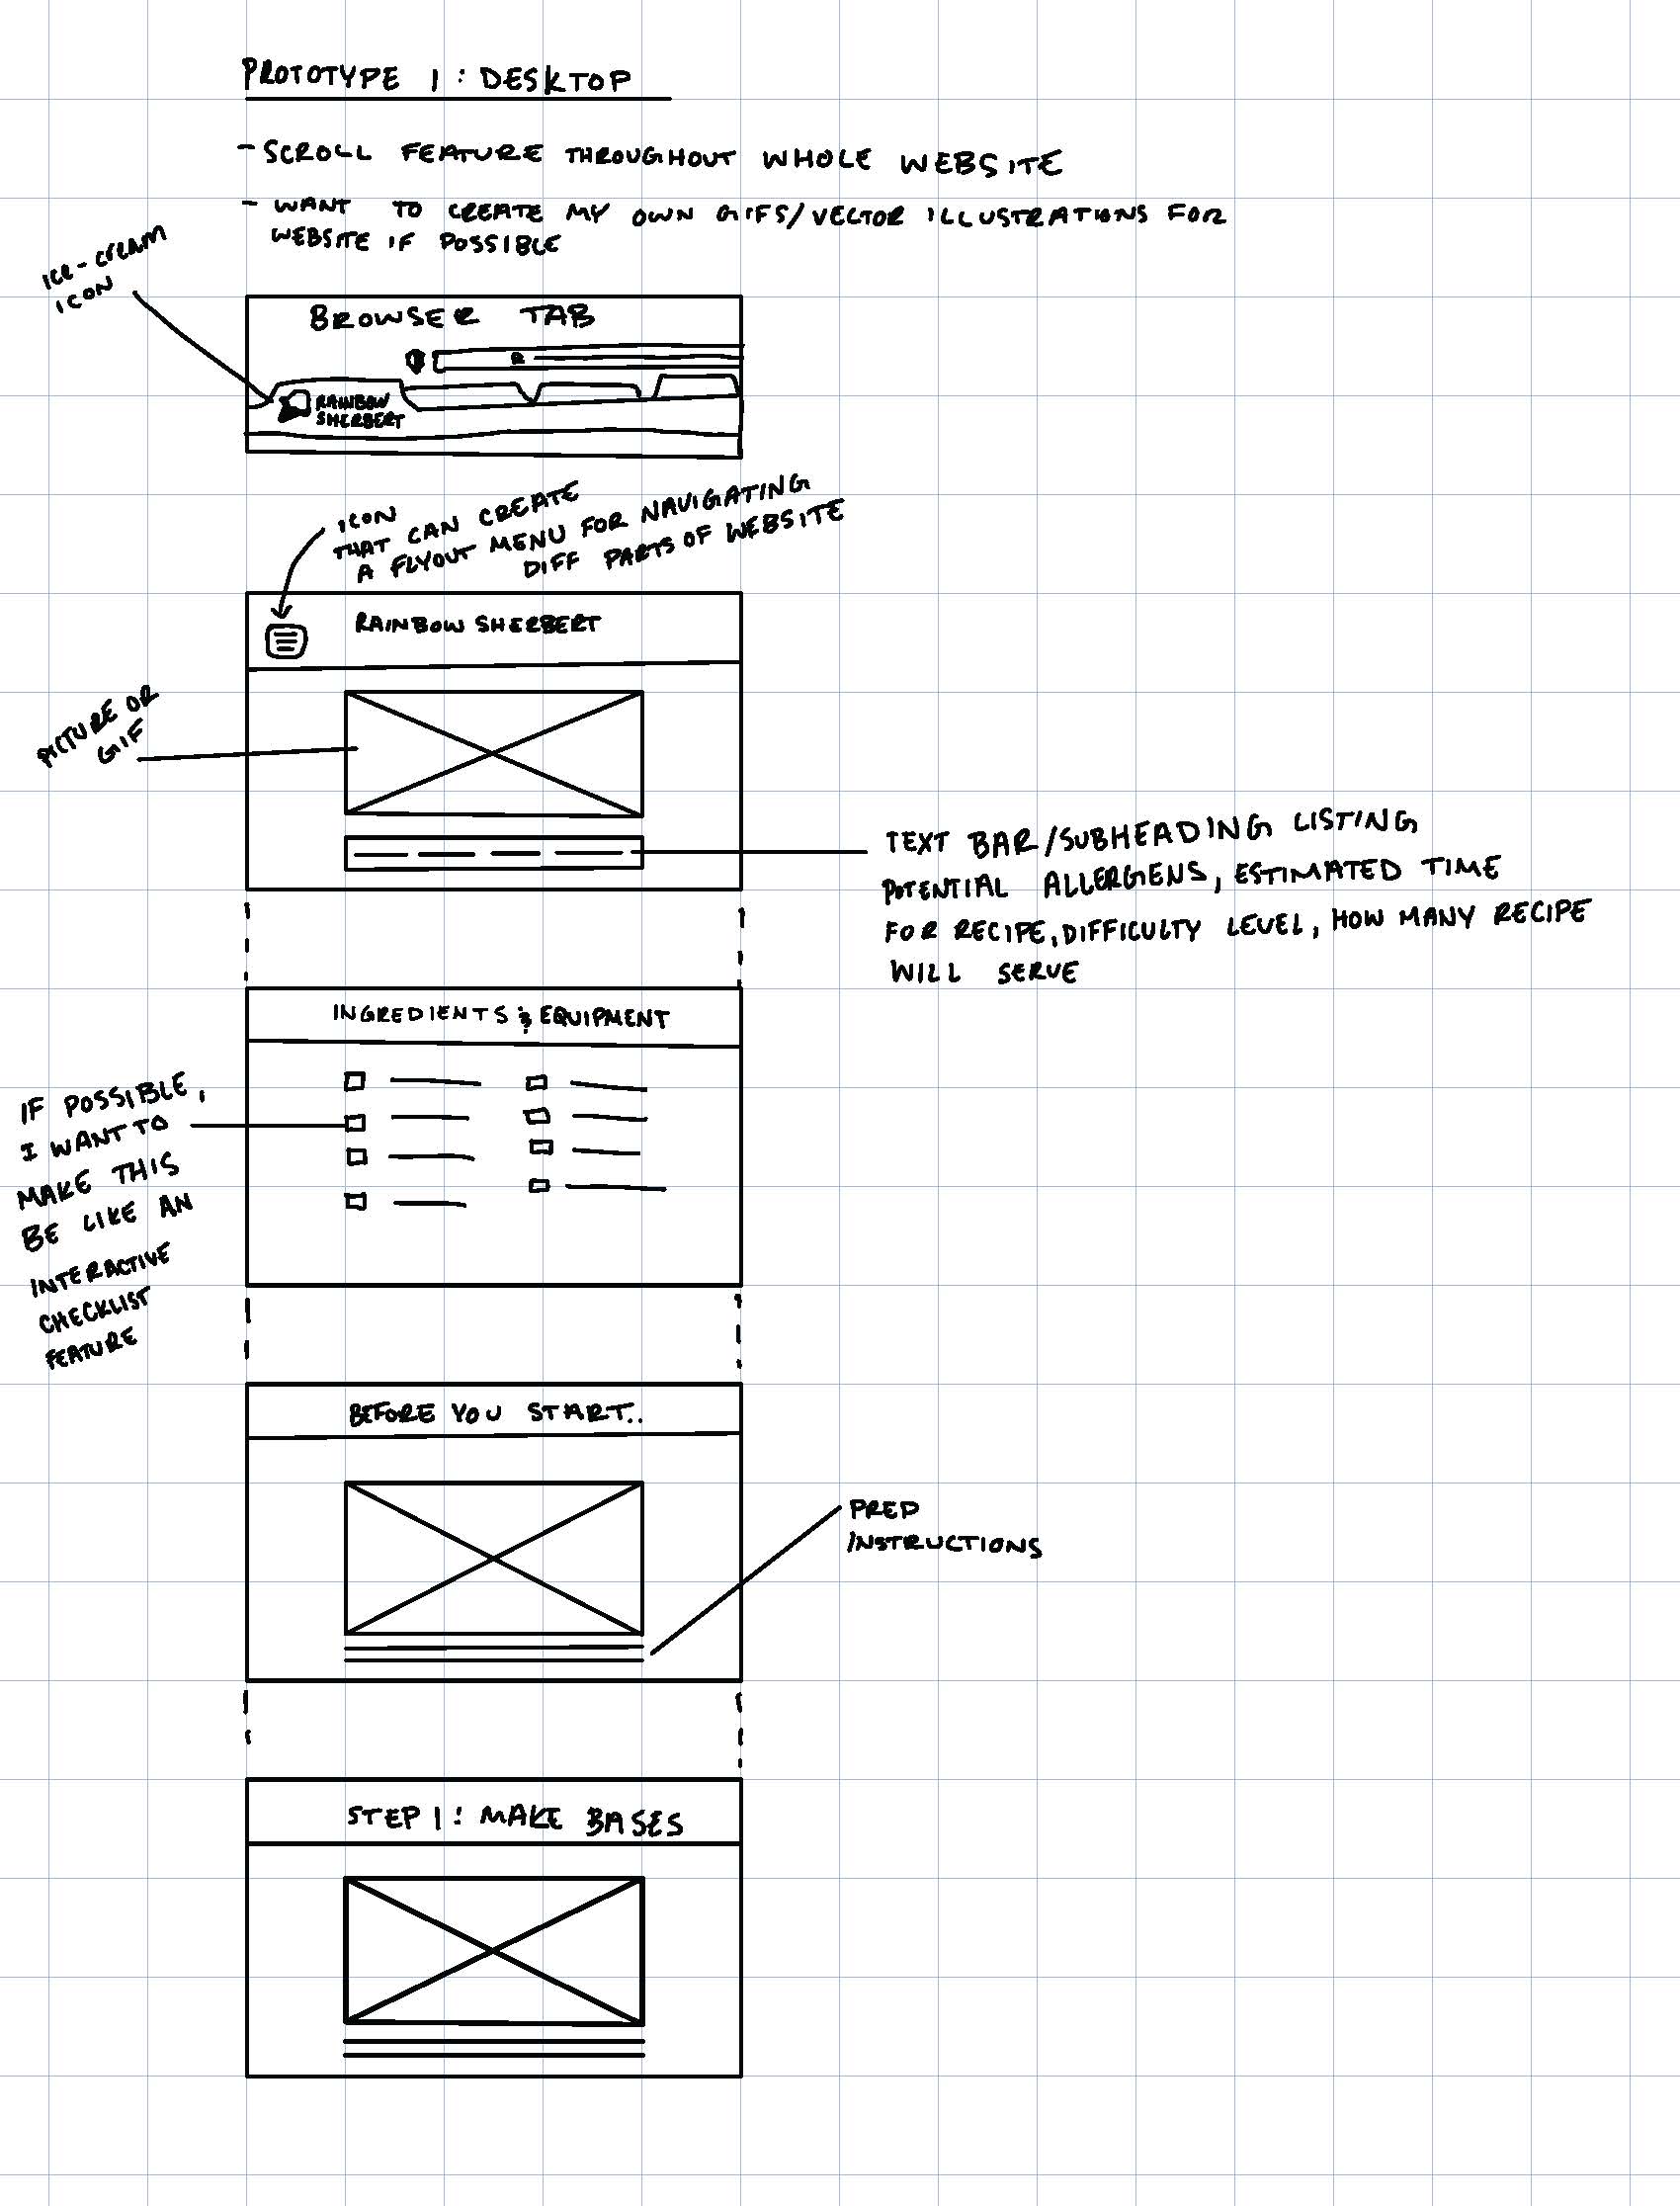 PROTOTYPE 1: DESKTOP
- SCROLL FEATURE THROUGHOUT WHOLE WEBSITE
- WANT TO CREATE MY OWN GIFS/VECTOR ILLUSTRATIONS FOR
WEBSITE IF POSSIBLE
ICE-CREAM
ICON
BROWSER TAB
RAINBOW
SHERBERT
ICON
THAT CAN CREATE
A FLYOUT MENU FOR NAVIGATING
DIFF PARTS OF WEBSITE
RAINBOW SHERBERT
PICTURE OR
GIF
TEXT BAR/SUBHEADING LISTING
POTENTIAL ALLERGENS, ESTIMATED TIME
FOR RECIPE, DIFFICULTY LEVEL, HOW MANY RECIPE
WILL SERVE
INGREDIENTS & EQUIPMENT
IF POSSIBLE,
I WANT TO
MAKE THIS
BE LIKE AN
INTERACTIVE
CHECKLIST
FEATURE
BEFORE YOU START..
PREP
INSTRUCTIONS
STEP 1: MAKE BASES